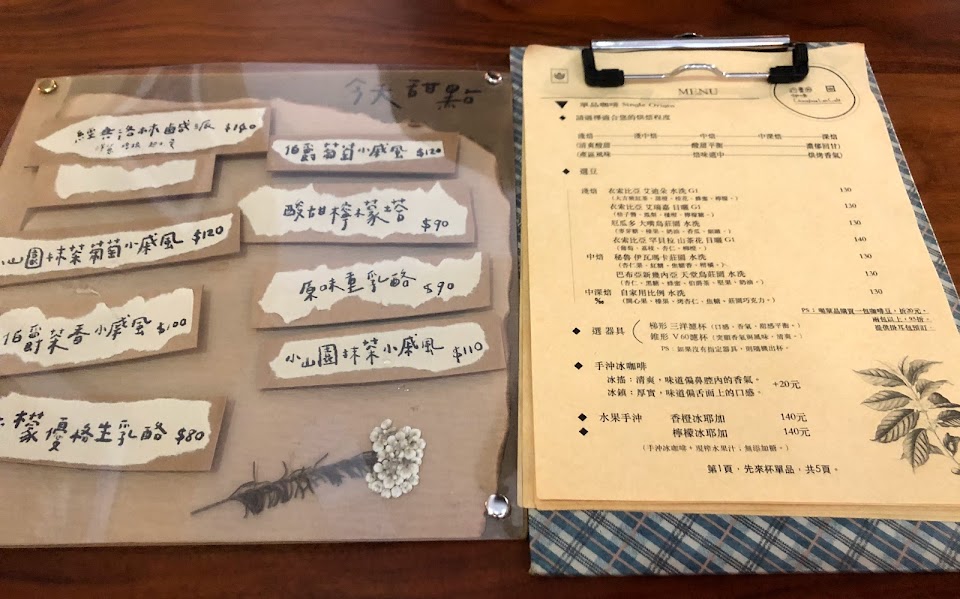 今天甜點
經典洛林鹹派 $140
伯爵葡萄小戚風 $120
酸甜檸檬塔 $90
小山園抹茶葡萄小戚風 $120
原味重乳酪 $90
伯爵茶香小戚風 $100
小山園抹茶小戚風 $110
檬優格生乳酪 $80
MENU
單品咖啡 Single Origin
請選擇適合您的烘焙程度
淺焙 淺中焙 中焙 中深焙 深焙
(清爽酸甜 酸甜平衡 濃郁回甘)
(產區風味 焙味適中 烘烤香氣)
選豆
淺焙 衣索比亞 艾迪朵 水洗 G1 130
衣索比亞 艾瑞嘉 日曬 G1 130
厄瓜多 大嘴鳥莊園 水洗 130
衣索比亞 罕貝拉 山茶花 日曬 G1 140
(葡萄、荔枝、杏仁、柳橙。)
中焙 秘魯 伊瓦瑪卡莊園 水洗 130
巴布亞新幾內亞 天堂鳥莊園 水洗 130
(杏仁、黑糖、蜂蜜、伯爵茶、堅果、奶油。)
中深焙 自家用比例 水洗 130
(開心果、榛果、烤杏仁、焦糖、莊園巧克力。)
PS：喝單品購買一包咖啡豆，折20元。
兩包以上，95折。
提供掛耳包預訂。
選器具 梯形 三洋濾杯 (口感、香氣、甜感平衡。)
錐形 V60濾杯 (突顯香氣與風味，清爽。)
PS：如果沒有指定器具，則隨機出杯。
手沖冰咖啡
冰搖：清爽，味道偏鼻腔內的香氣。 +20元
冰鎮：厚實，味道偏舌面上的口感。
水果手沖 香橙冰耶加 140元
檸檬冰耶加 140元
(手沖冰咖啡。現榨水果汁；無添加糖。)
第1頁，先來杯單品，共5頁。